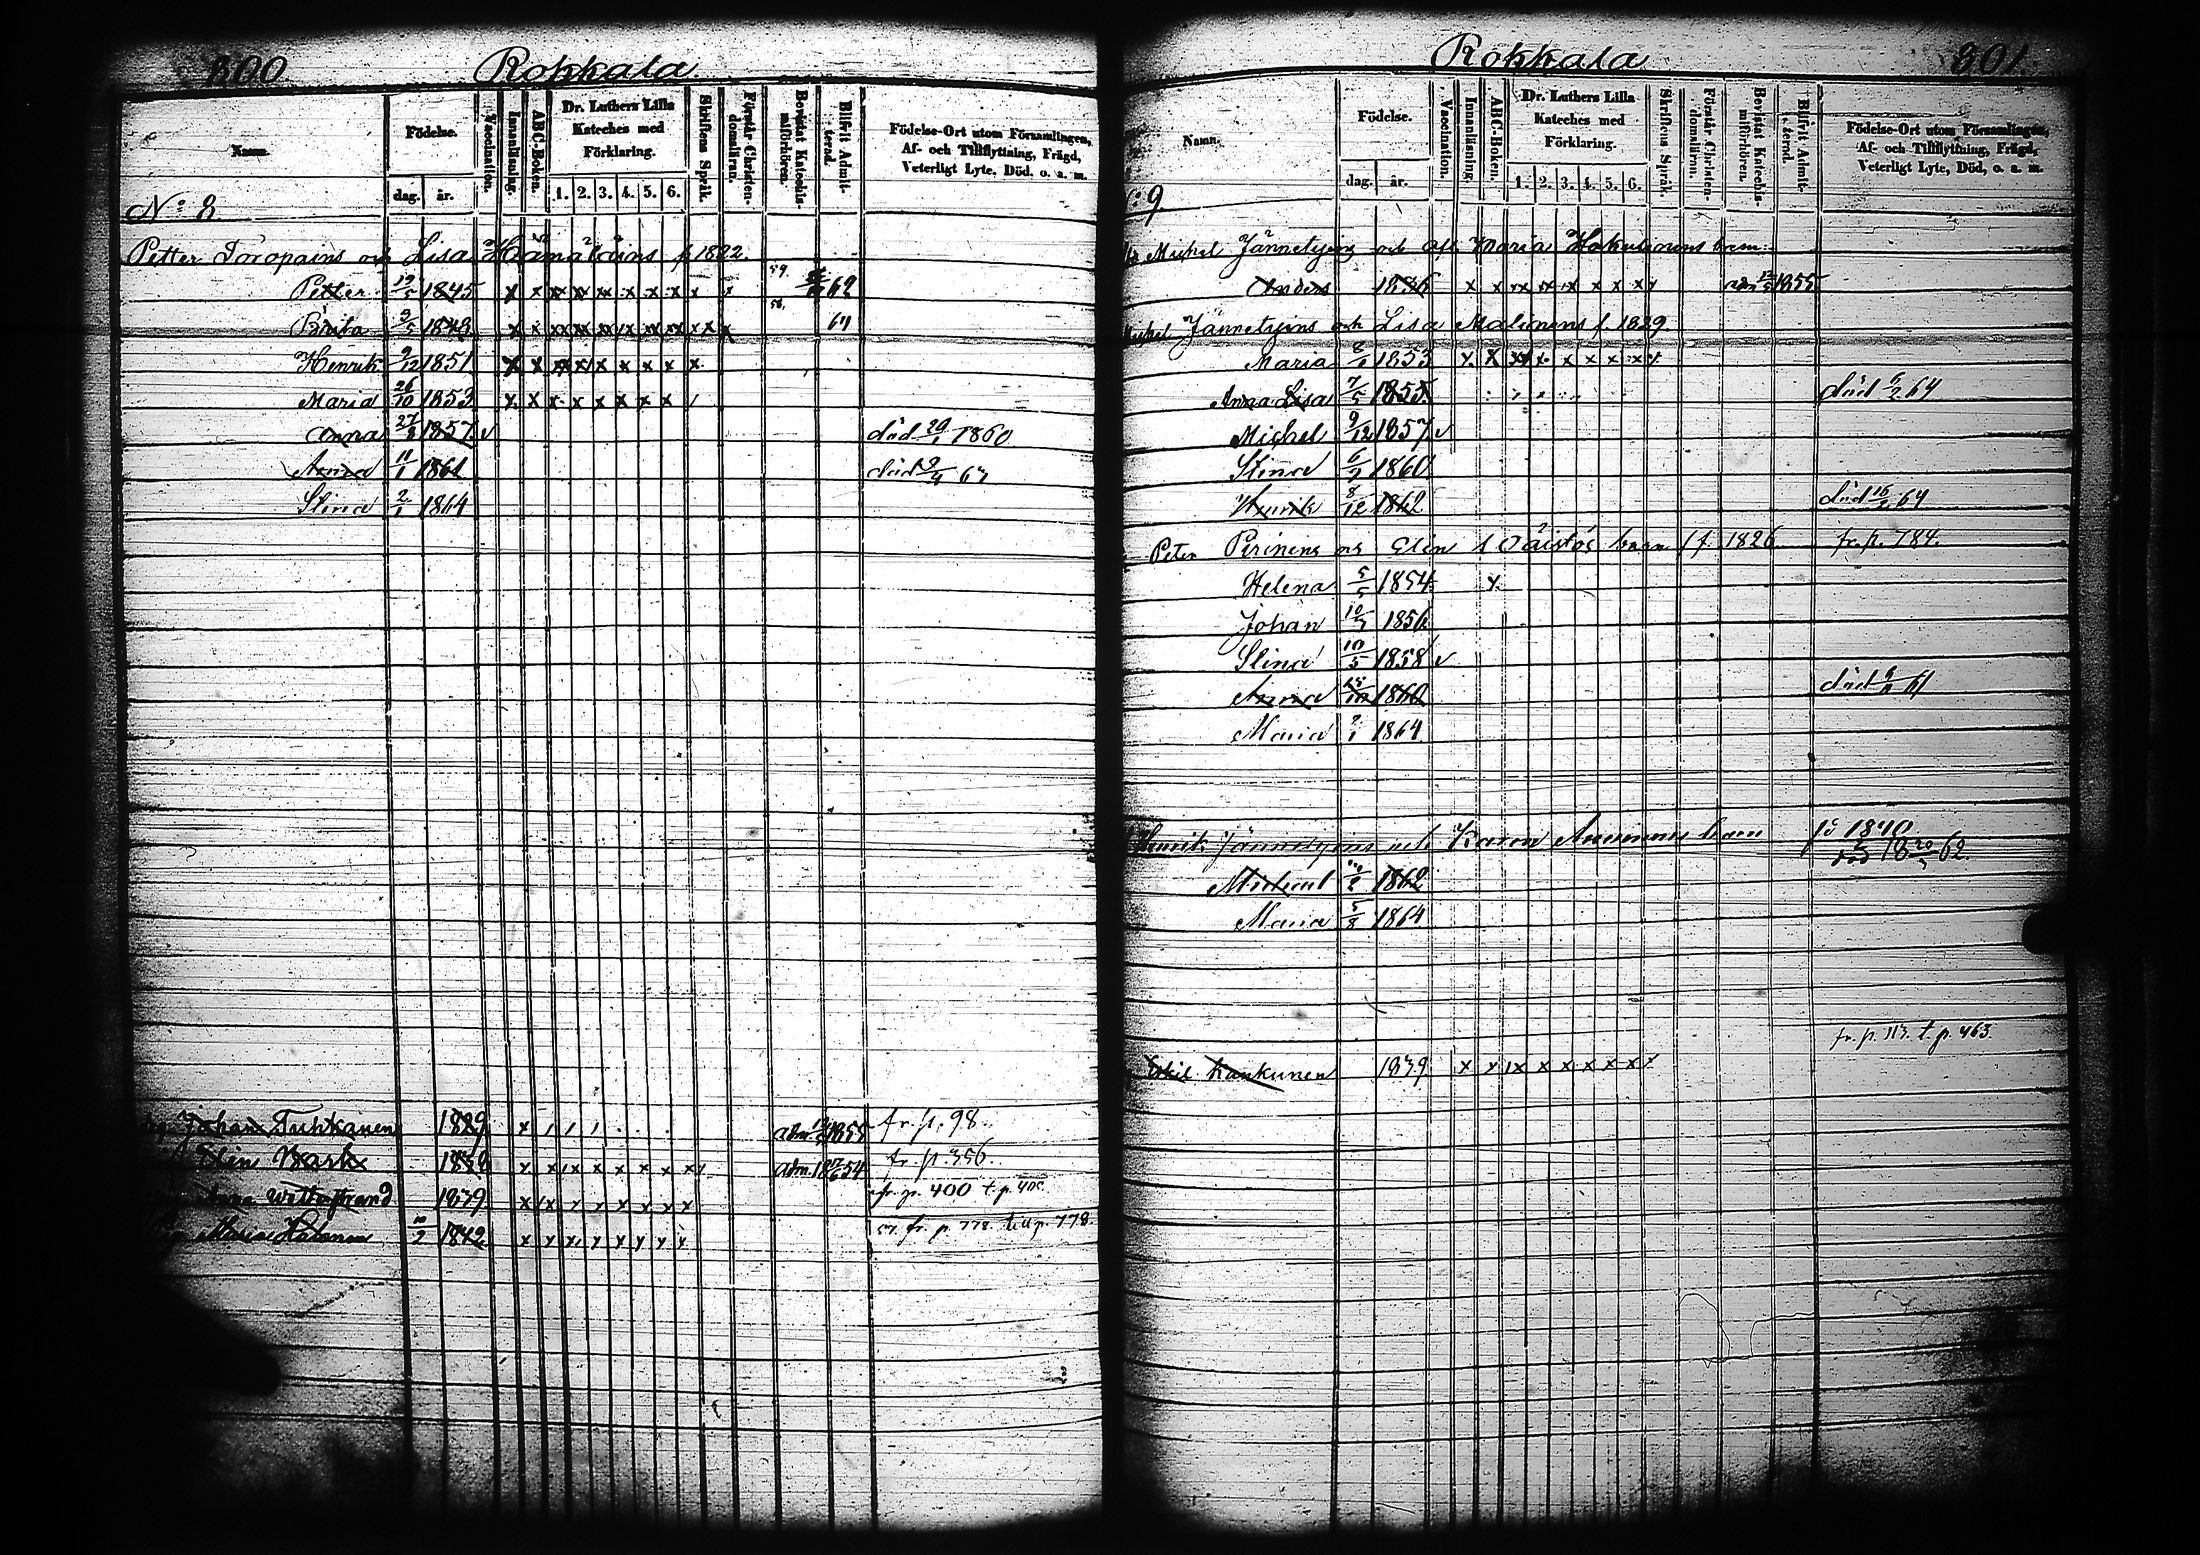 800 Rokkala
Namn. Födelse. dag. år. Vaccination. Innanläsning. ABC-Boken. Dr. Luthers Lilla Kateches med Förklaring. 1. 2. 3. 4. 5. 6. Skriftens Språk. Förstår Christendomsläran. Bevistat Katechismiförhören. Blifvit Admitterad. Födelse-Ort utom Församlingen, Af- och Tillflyttning, Frägd, Veterligt Lyte, Död, o. a. m.
No 8
Petter Toropains och Lisa f. 1822.
Petter 19/5 1845 x x xx xx xx x x x x x 59. 58. 62
Brita 9/5 1849 x x xx xx x xx xx x x x 64
Henrik 9/12 1851 x x xx x x x x x x
Maria 26/10 1853 x x x x x x x x
Anna 27/8 1857 v död 29/1 1860
Anna 11/1 1861 död 9/4 63
Stina 2/1 1864
Johan Tuhkanen 1829 x adm 1855 fr. p. 98
Elin Wark x x x x x x x x adm. 54 fr. p. 356.
Anna Wetterstrand 1839 x x x x x x x x fr. p. 400 t. p. 400
Maria 1842 x x x x x x x x fr. p. 778. till p. 778.
Rokkala 801.
Namn. Födelse. dag. år. Vaccination. Innanläsning. ABC-Boken. Dr. Luthers Lilla Kateches med Förklaring. 1. 2. 3. 4. 5. 6. Skriftens Språk. Förstår Christendomsläran. Bevistat Katechismiförhören. Blifvit Admitterad. Födelse-Ort utom Församlingen, Af- och Tillflyttning, Frägd, Veterligt Lyte, Död, o. a. m.
9
Michel Jännetyins och afl. Maria barn:
Anders 1836 x x xx x x x x x adm 1855
Michel Jännetyins och Lisa Malinens f. 1829.
Maria 1853 x x xx x x x x x x
Anna Lisa 7/5 1855 död 6/2 64
Michel 9/12 1857 v
Stina 6/9 1860
Henrik 8/12 1862 död 16/2 64
Peter Pirinens och Elin Väistös barn f. 1826 fr. p. 784.
Helena 5/5 1854 x
Johan 10/7 1856
Stina 10/5 1858 v
Anna 1860 död 61
Maria 2/1 1864
Henrik Jännetyins och Karin barn 1840 62.
Michael 1862
Maria 5/8 1864
fr. p. 113. t. p. 463.
Kankunen 1839 x x x x x x x x x